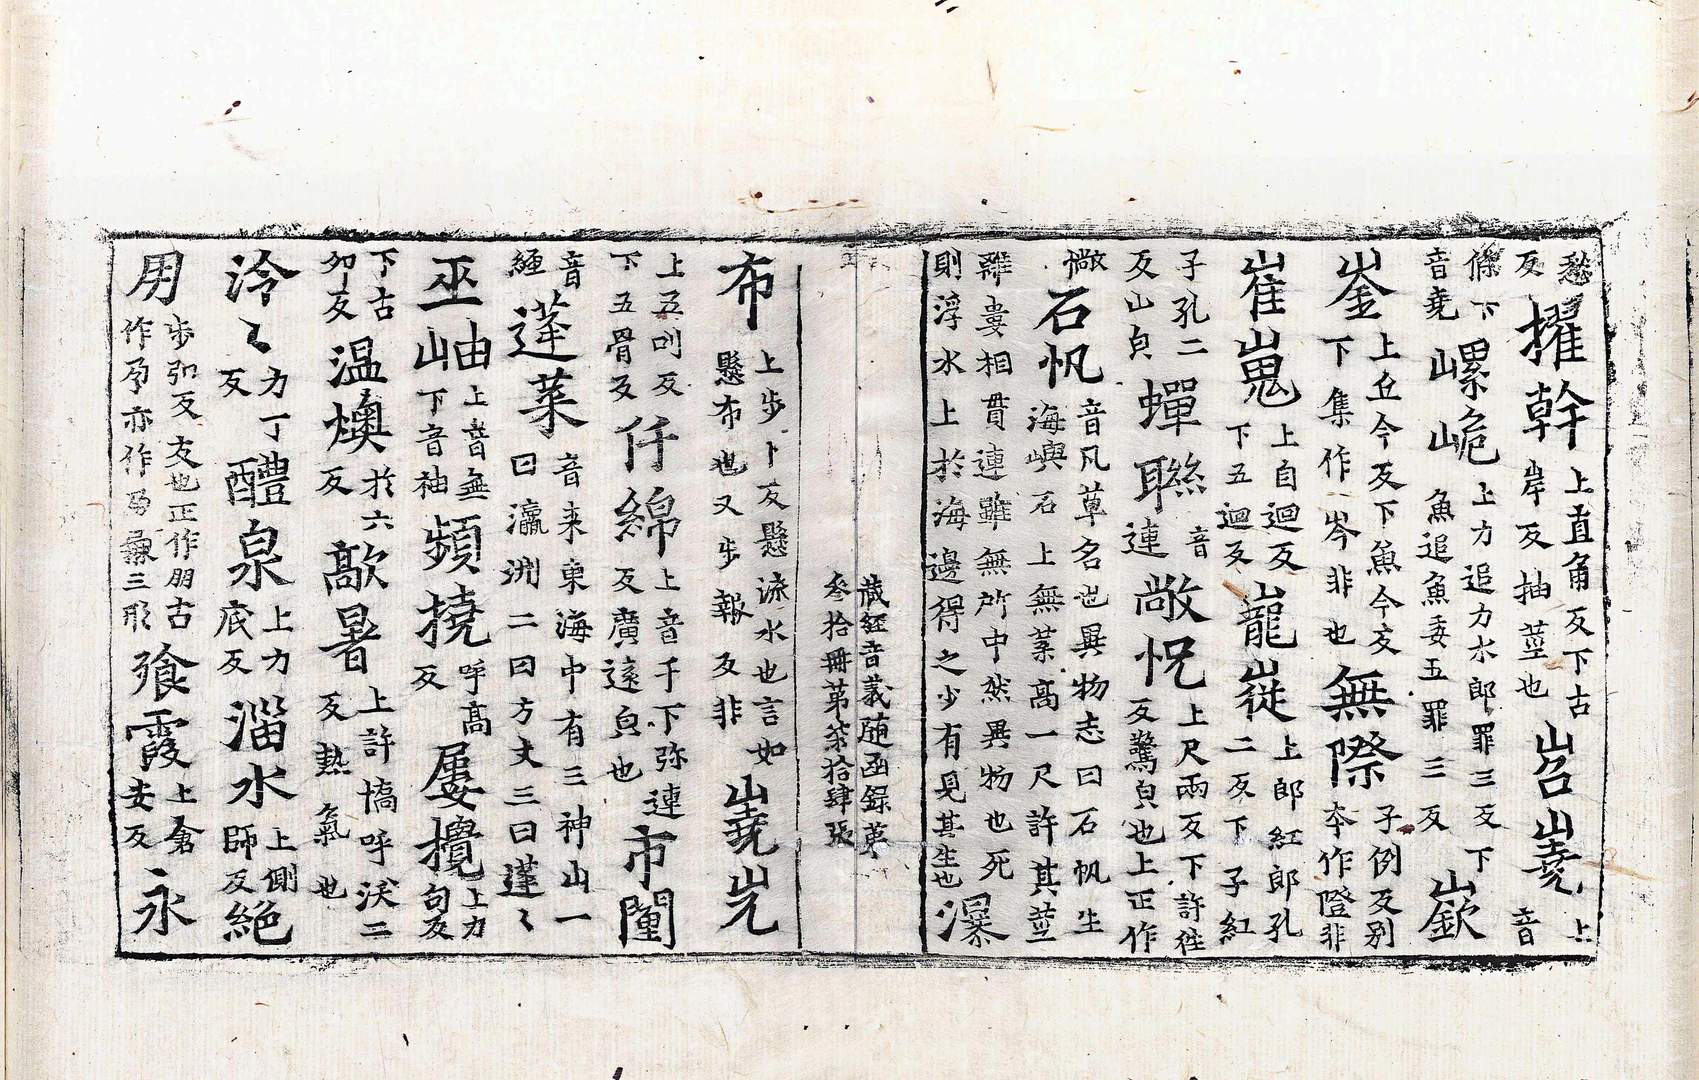 愁反擢幹上直角反下古岸反抽莖也岧嶤上音
條下音堯㟺峗上力追力水郎罪三反下魚追魚委五罪三反嶔
崟上丘今反下魚今反下集作岑非也無際子例反別本作隥非
崔嵬上自迴反下五迴反巃嵷上郎紅郎孔二反下子紅
子孔二反山皃蟬聯音連敞怳上尺兩反下許往反驚皃也上正作
敞石帆音凡草名也異物志曰石帆生海嶼石上無葉高一尺許其莖
雖婁相貫連雖無所中然異物也死則浮水上於海邊得之少有見其生也瀑
藏經音義隨函錄第叁拾冊第柒拾肆張
布上步卜反懸流水也言如懸布也又步報反非嶤屼
上五叫反下五骨反仟綿上音千下弥連反廣遠皃也市闤
音還蓬萊音来東海中有三神山一曰瀛洲二曰方丈三曰蓬〻
巫岫上音無下音袖蘋撓呼高反屢攬上力句反
下古卯反温燠於六反歊暑上許憍呼沃二反熱氣也
泠〻力丁反醴泉上力底反淄水上側師反絕
用步弘反友也正作朋古作𢎪亦作𠃧三形飡霞上倉安反永